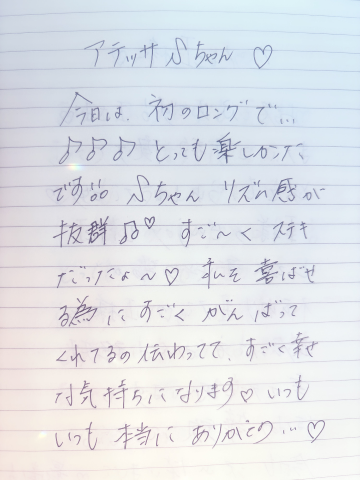 アテッサ Sちゃん ♡
今日は、初のロングで…
♪♪♪ とっても楽しかった
です♫ Sちゃん リズム感が
抜群♫♡ すご〜く ステキ
だったよ〜♡ 私を喜ばせ
る為に すごく がんばって
くれてるの伝わってて、すごく幸せ
な気持ちになります♡ いつも
いつも 本当に ありがとう…♡